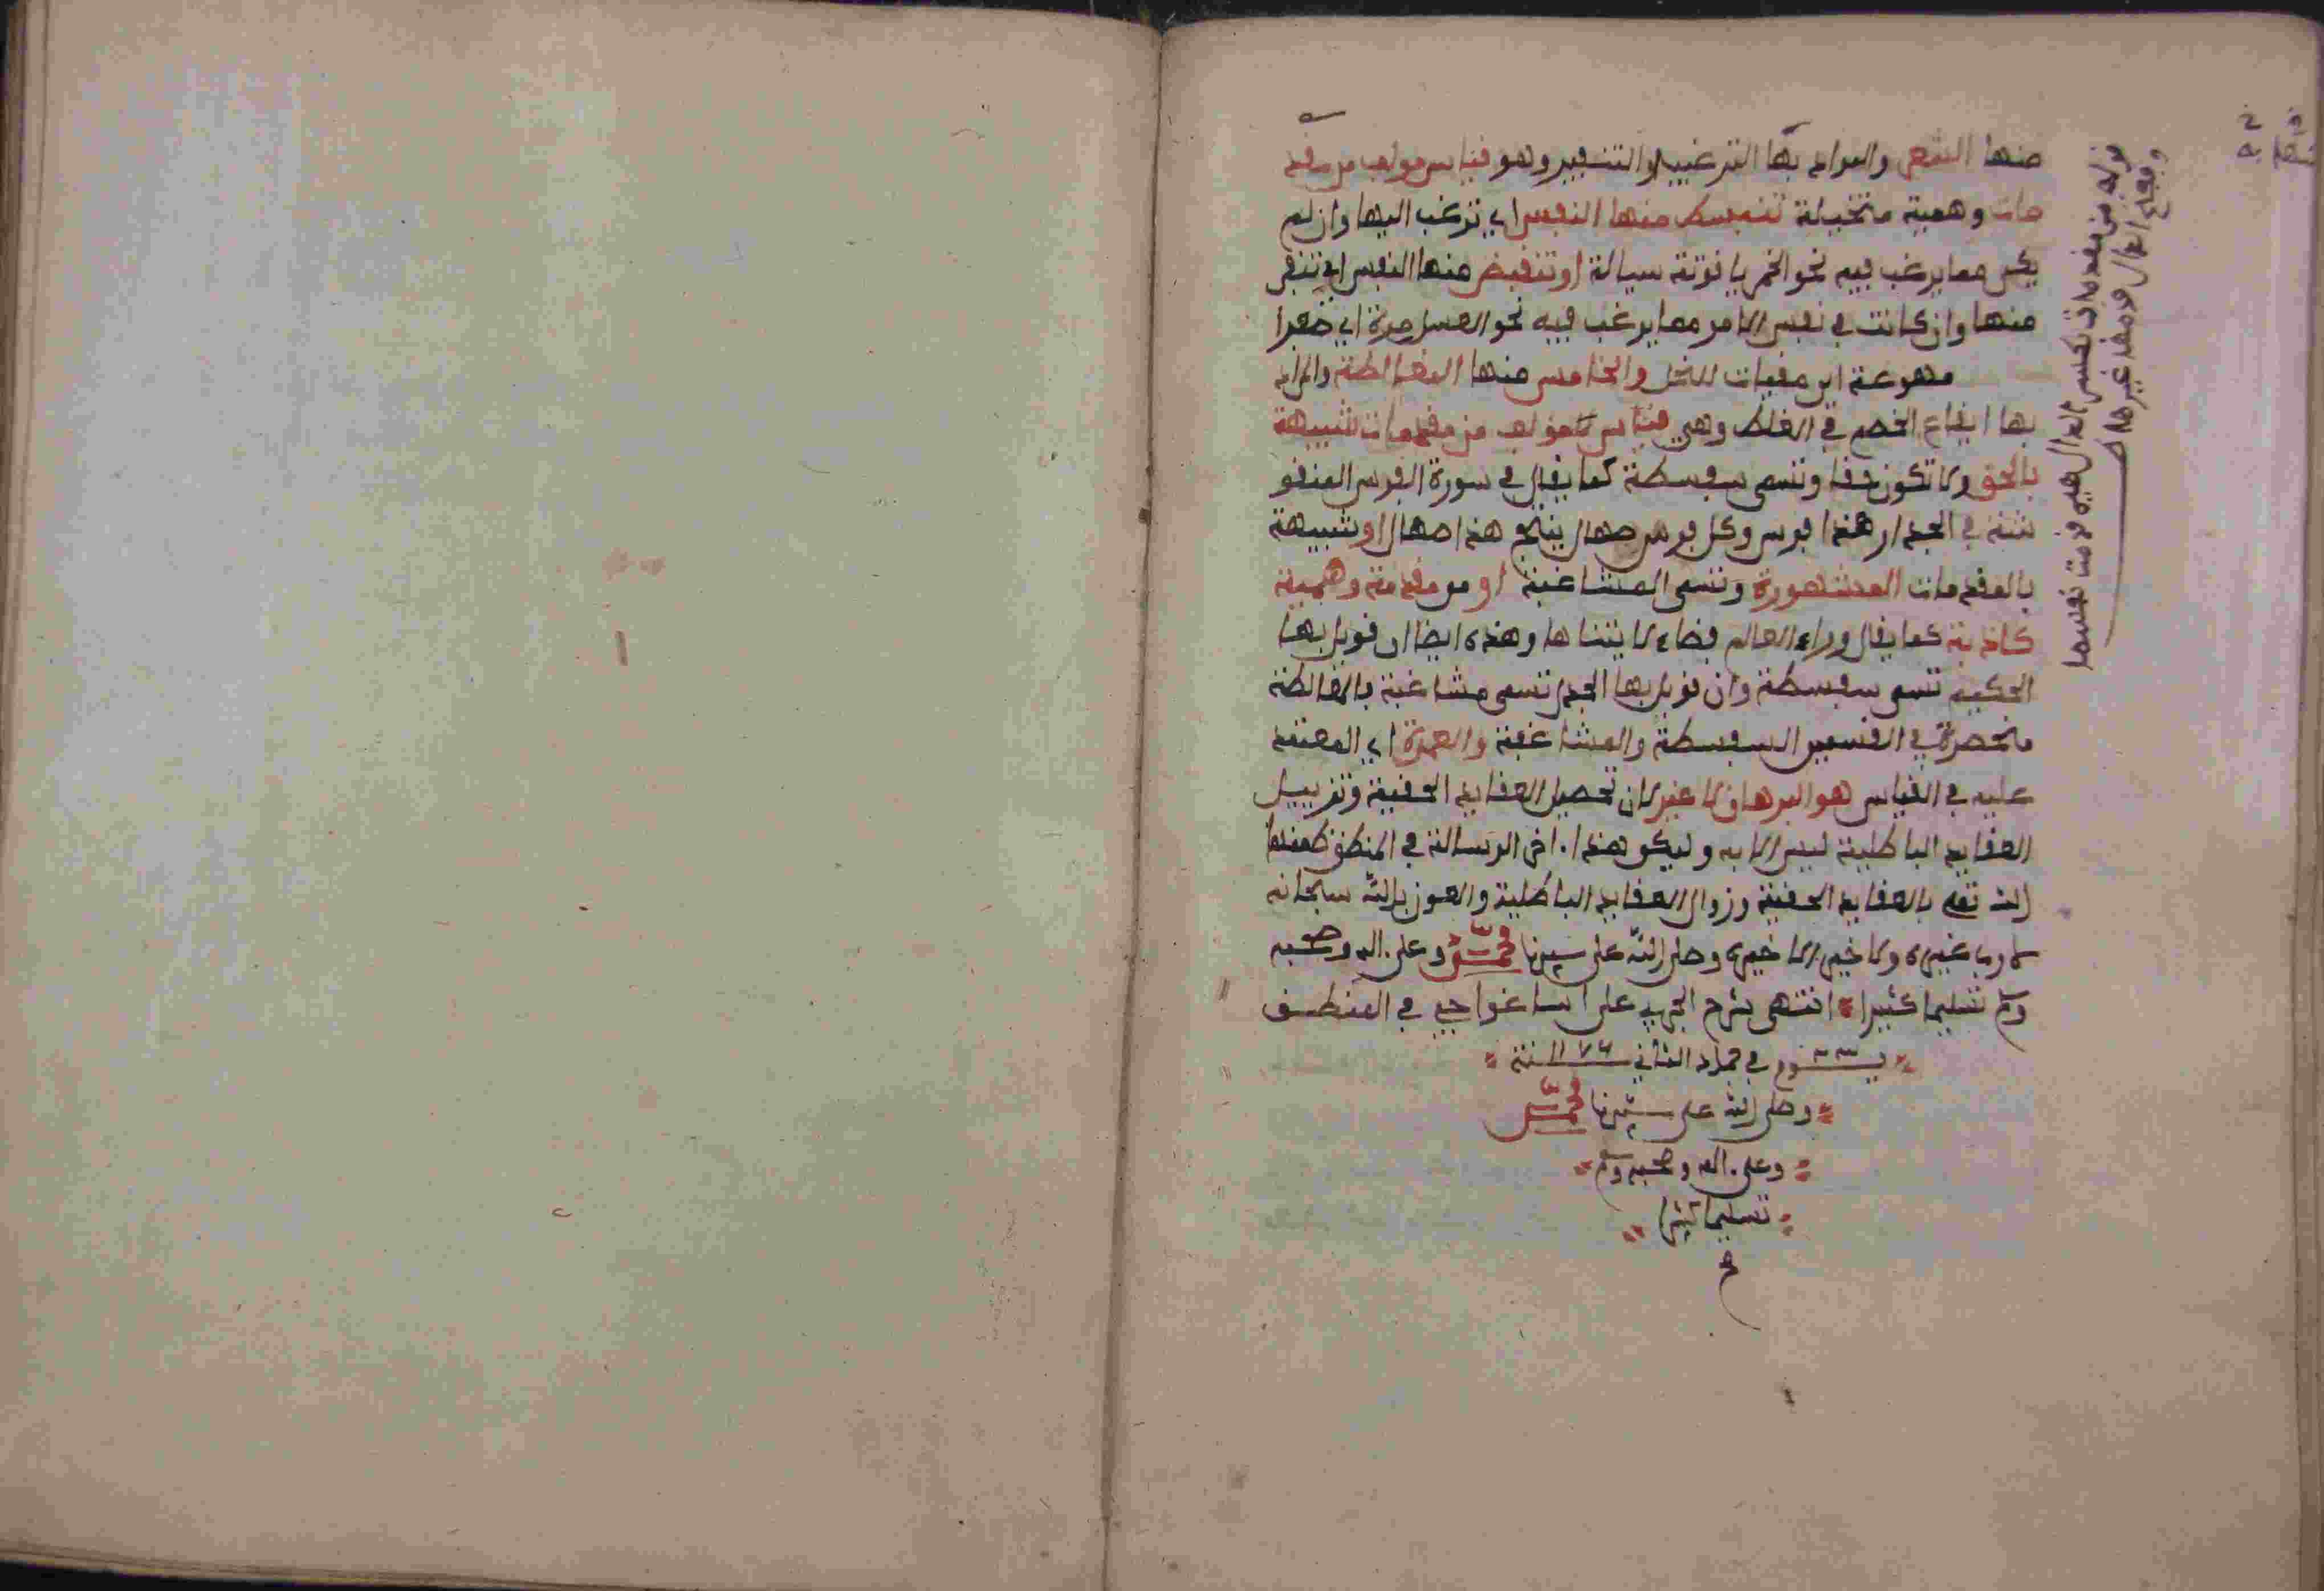 منها الشعر والمراد بها الترغيب او التنفير وهو قياس مولف من مقد
مات وهمية متخيلة تنبسط منها النفس اي ترغب اليها وان لم
يكن مما يرغب فيه نحو الخمر ياقوتة سيالة او تنقبض منها النفس اي تنفر
منها وان كانت في نفس الامر مما يرغب فيه نحو العسل مرة اي صفرا
مهوعة اي مقيات للنحل والخامس منها المغالطة والمراد
بها ايقاع الخصم في الغلط وهي قياس مولف من مقدمات شبيهة
بالحق ولا تكون حقا وتسمى سفسطة كما يقال في صورة الفرس المنقو
شة في الجدار هذا فرس وكل فرس صهال ينتج هذا صهال او شبيهة
بالمقدمات المشهورة وتسمى المشاغبة او من مقدمة وهمية
كاذبة كما يقال وراء العالم فضاء لا يتناها وهذه ايضا ان قوبل بها
الحكيم تسمى سفسطة وان قوبل بها الجدل تسمى مشاغبة فالمغالطة
منحصرة في القسمين السفسطة والمشاغبة والعمدة اي المعتمد
عليه في القياس هو البرهان لا غير لان تحصيل العقايد الحقية وتزييل
العقايد الباطلية ليس الا به وليكن هذا اخر الرسالة في المنطق
الله تعلى بالعقايد الحقية وزوال العقايد الباطلية والعون بالله سبحانه
لا رب غيره ولا خير الا خيره وصلى الله على سيدنا محمد وعلى اله وصحبه
وسلم تسليما كثيرا انتهى شرح على ايساغواجي في المنطق
في جماد الثاني سنة ١١٧٤
وصلى الله على سيدنا محمد
وعلى اله وصحبه وسلم
تسليما كثيرا